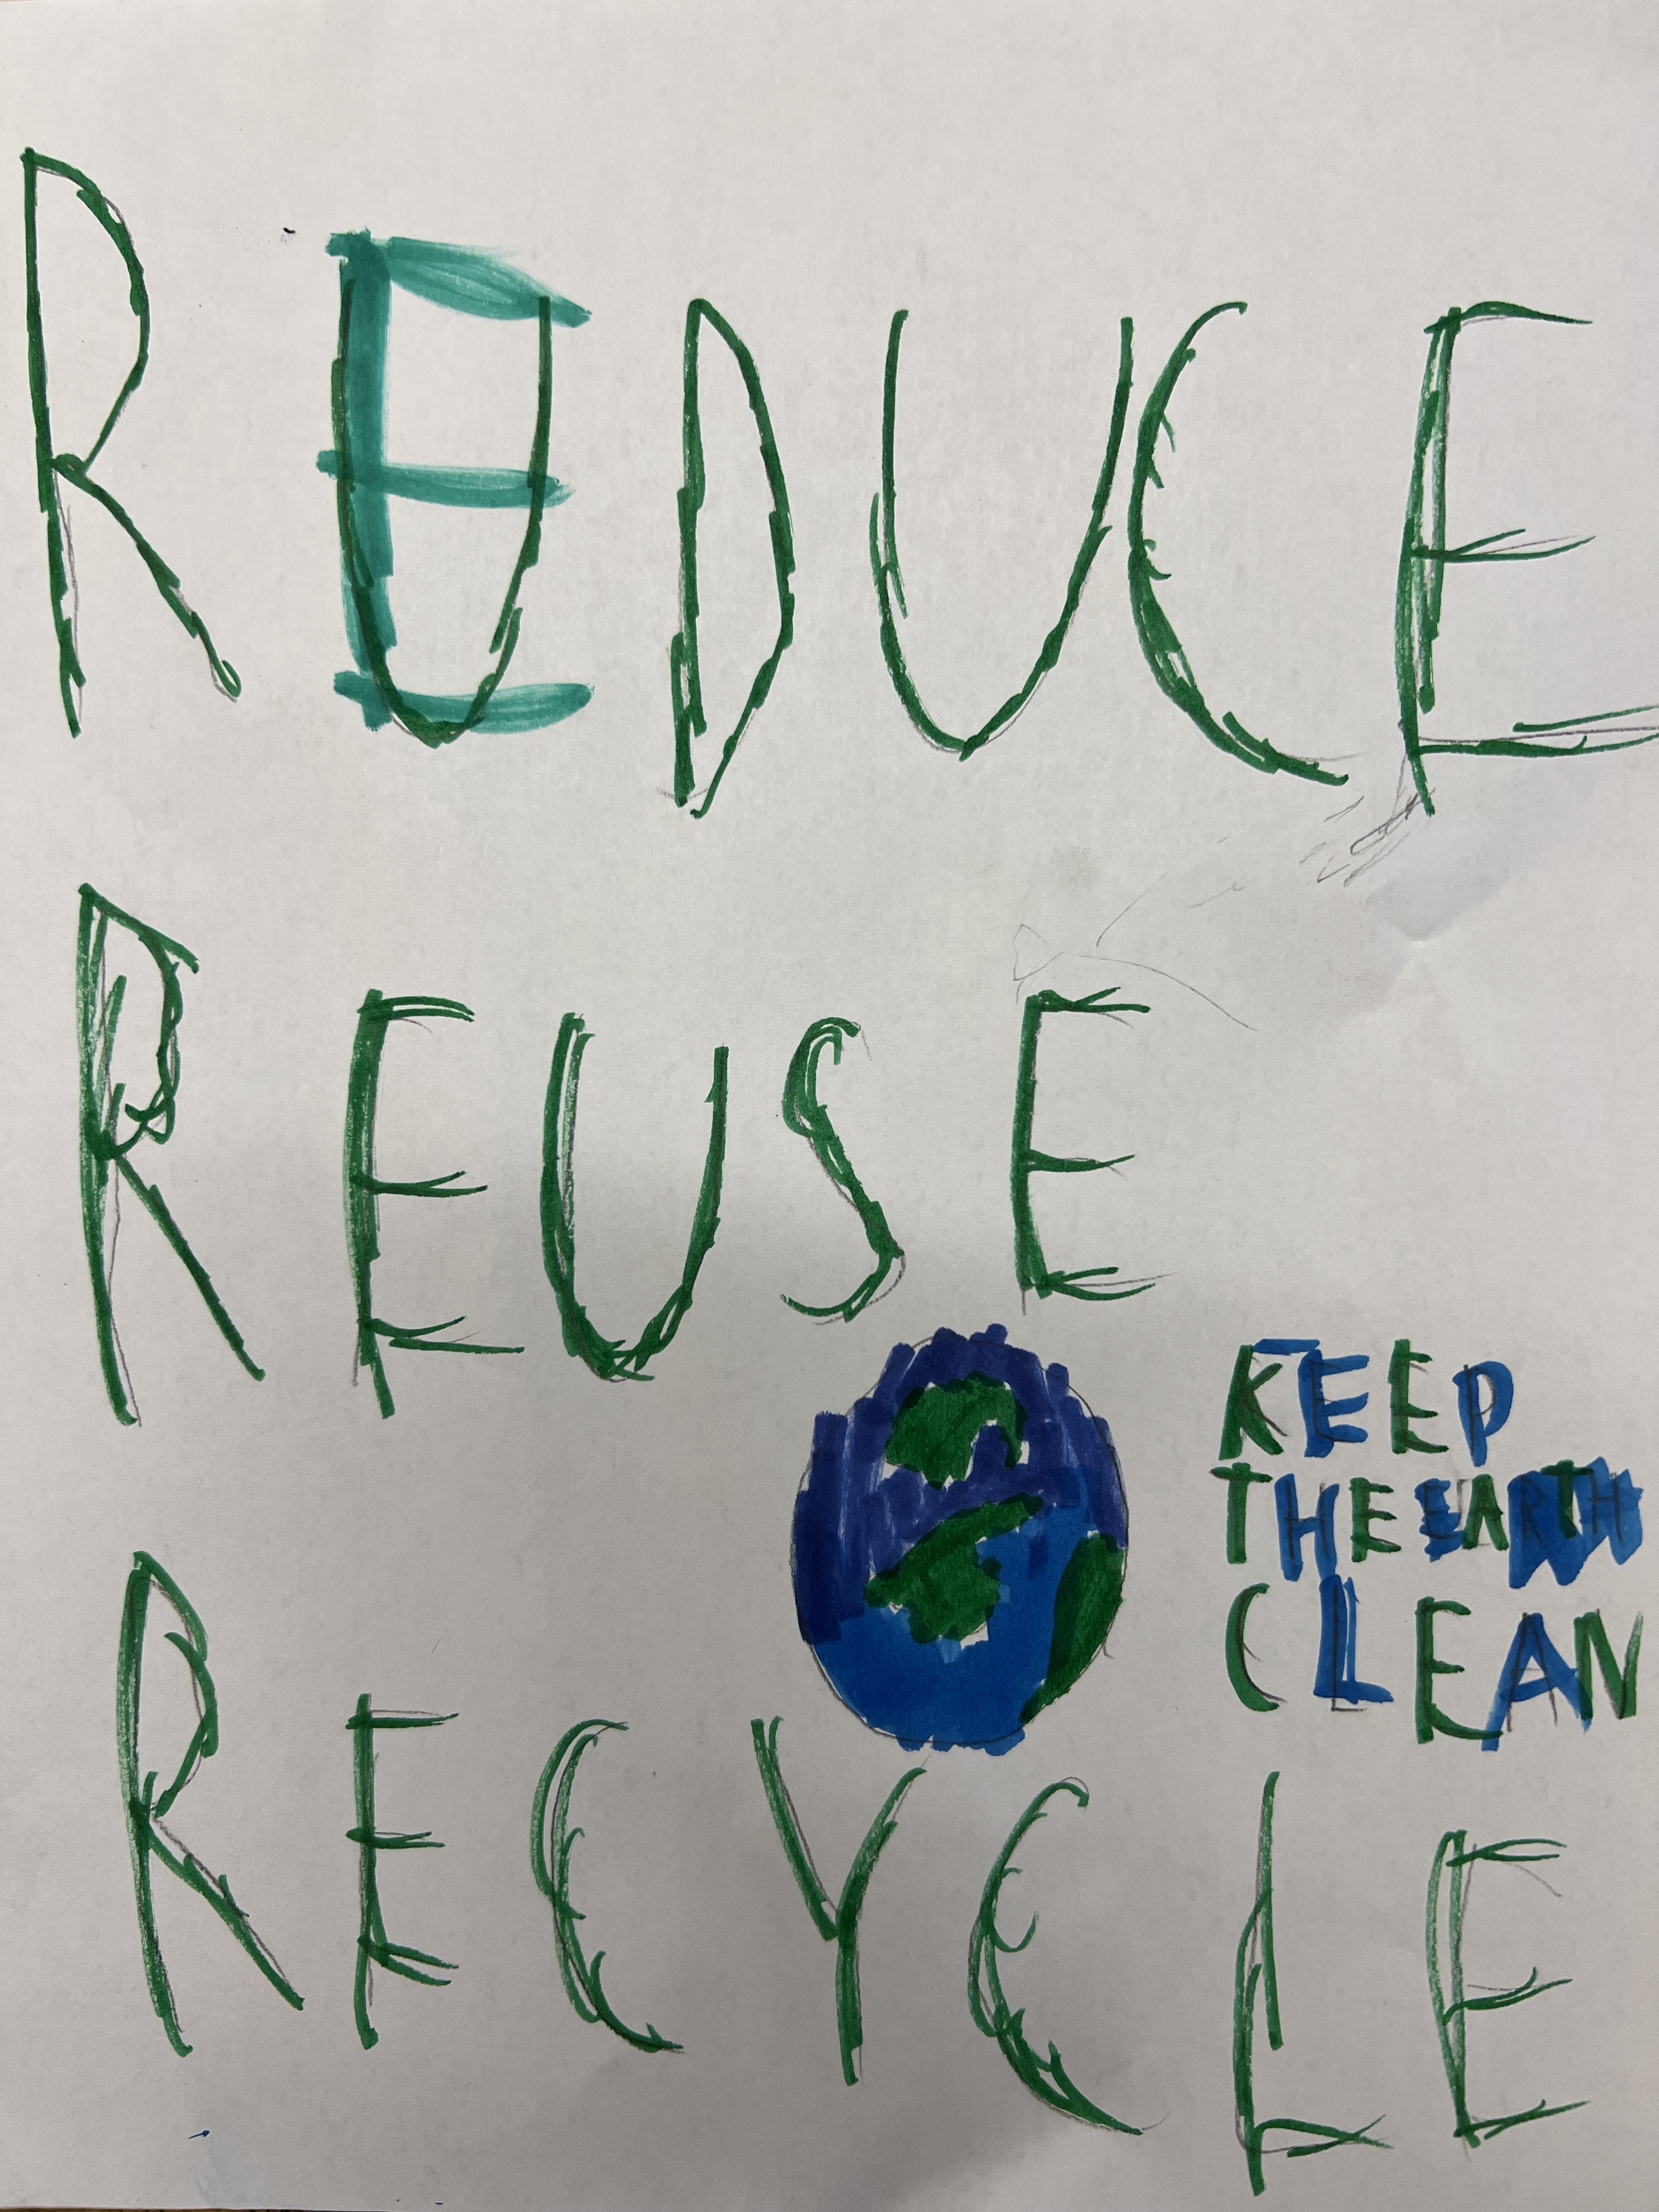 REDUCE
REUSE
KEEP
THE EARTH
CLEAN
RECYCLE